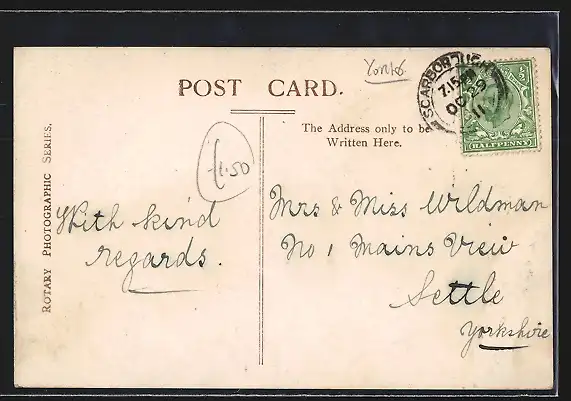 Yorks
POST CARD.
SCARBOROUGH
7.15 PM
OC 29
11
HALFPENNY
The Address only to be
Written Here.
£1.50
ROTARY PHOTOGRAPHIC SERIES.
With kind
regards.
Mrs & Miss Wildman
No 1 Mains View
Settle
Yorkshire